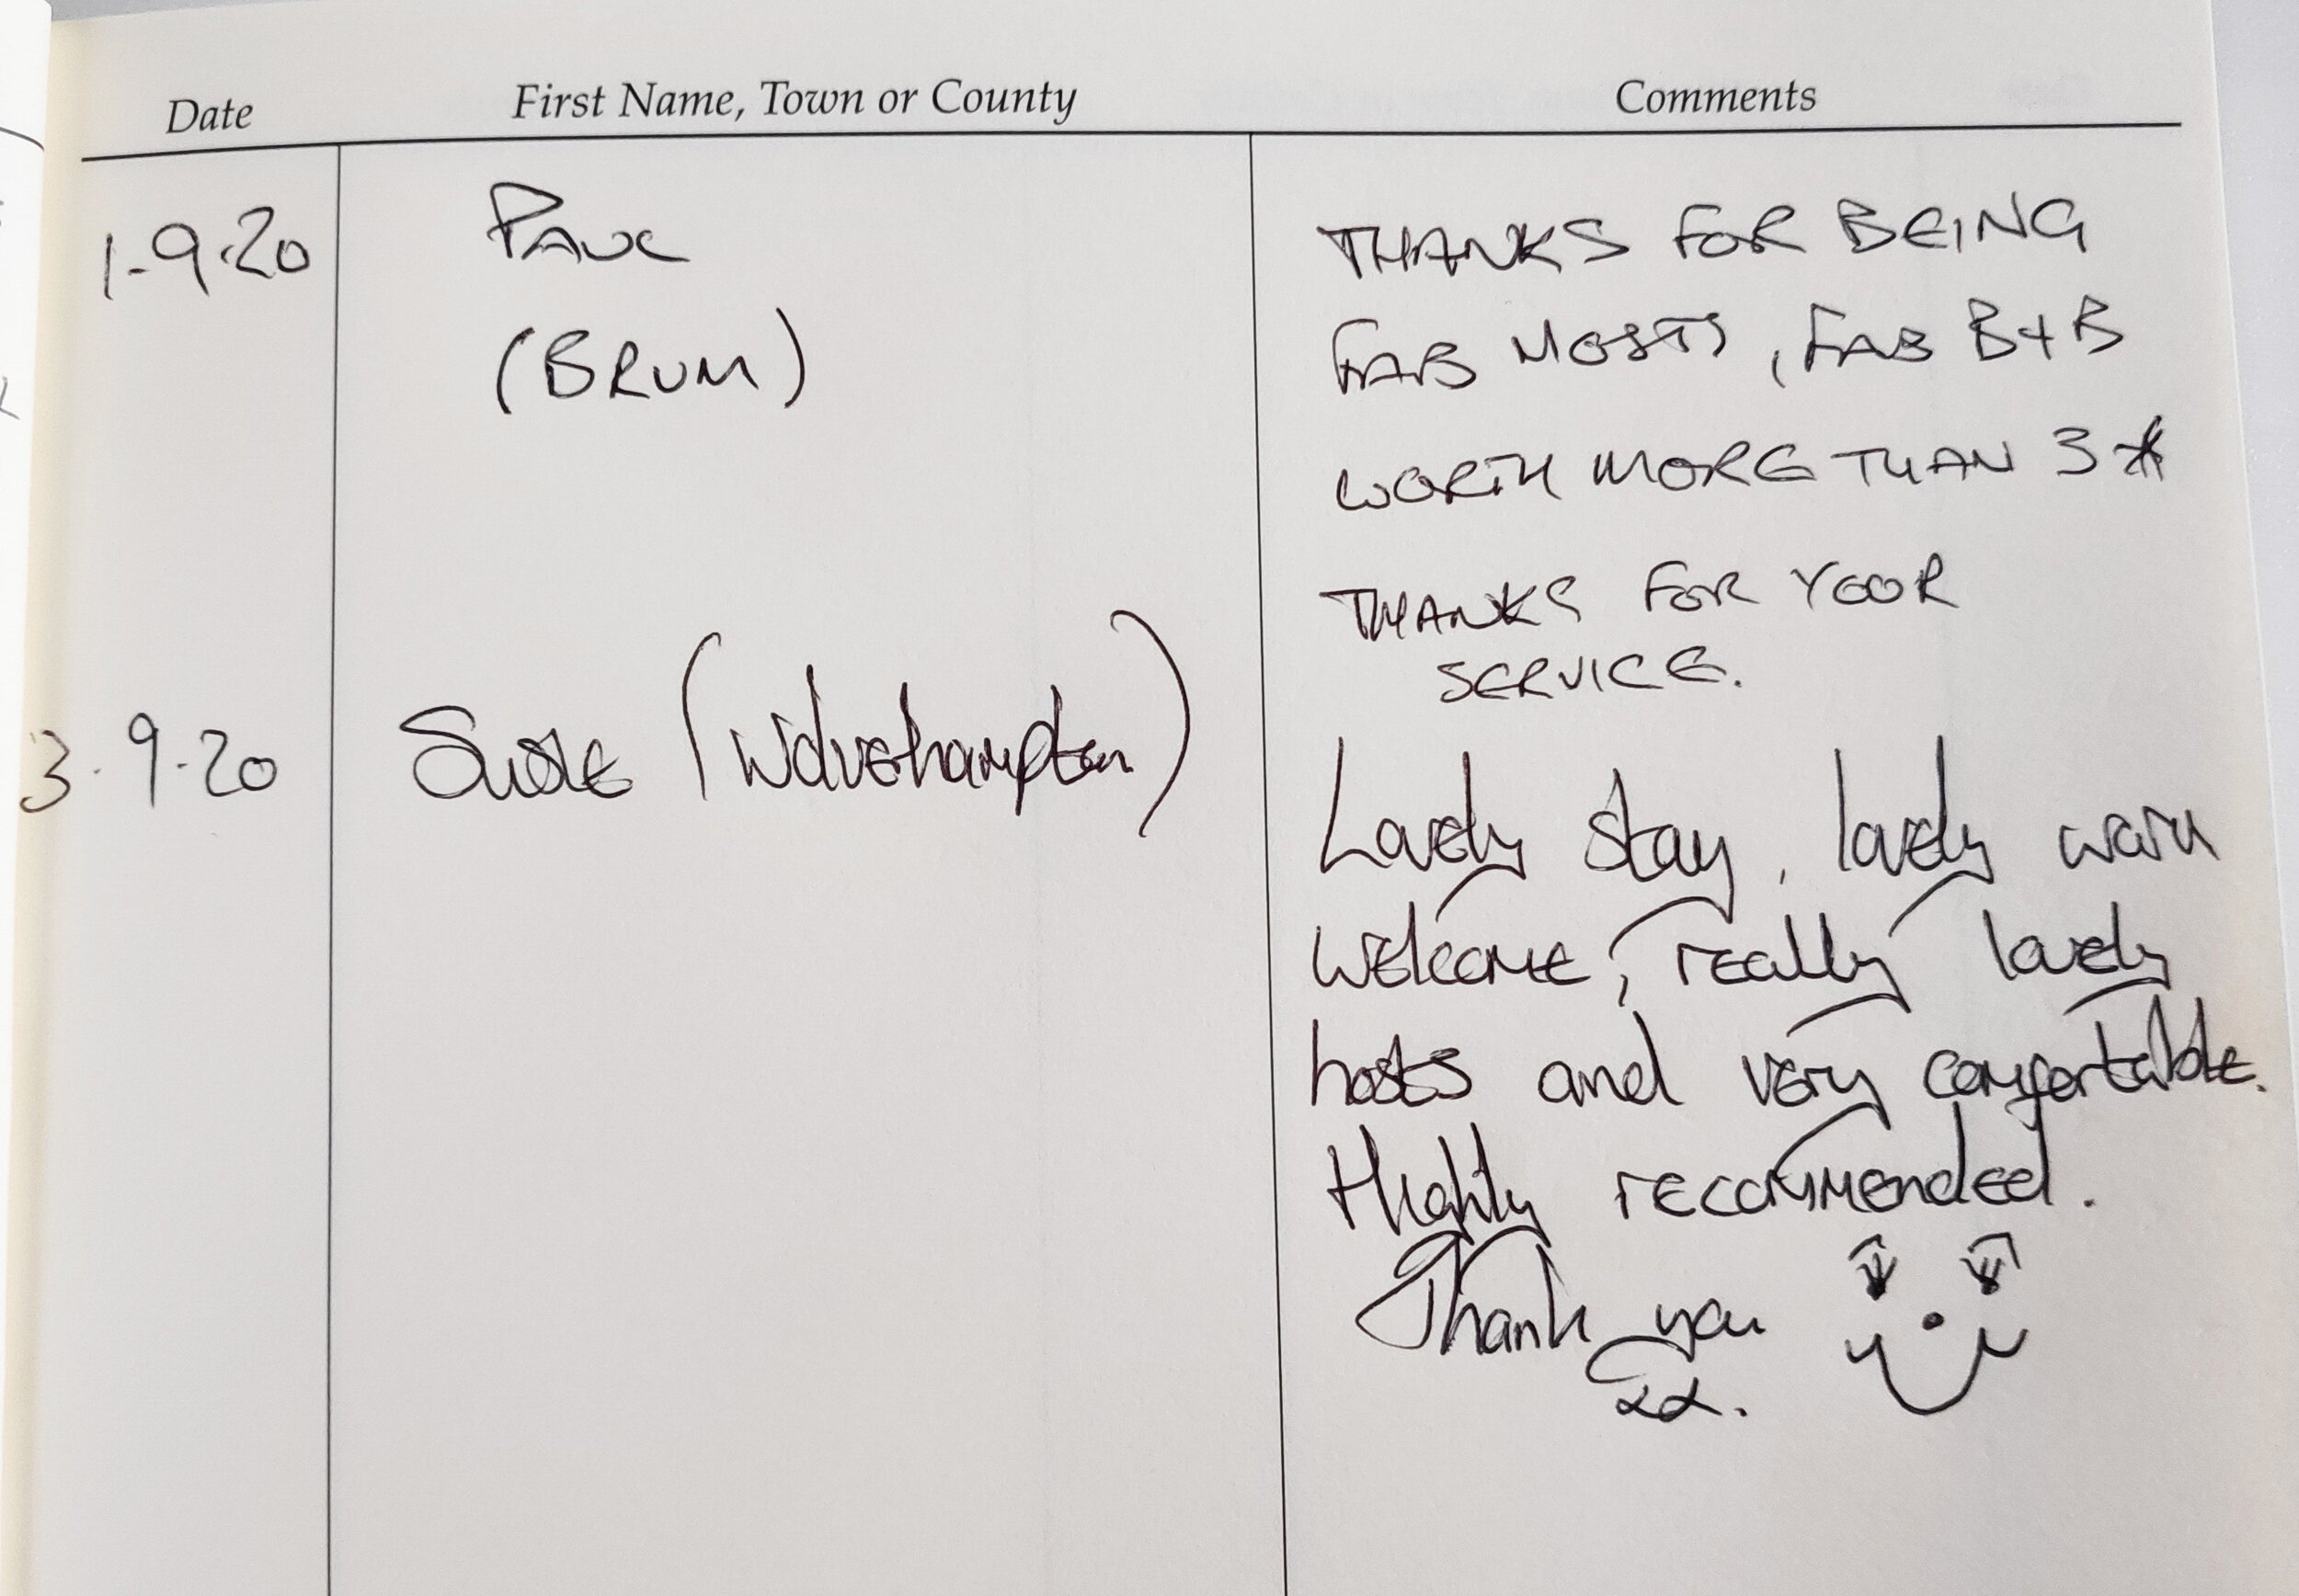 Date First Name, Town or County Comments
1-9-20 PAUL THANKS FOR BEING
(BRUM) FAB HOSTS, FAB B+B
WORTH MORE THAN 3*
THANKS FOR YOUR
SERVICE.
3.9.20 Susie (Wolverhampton)
Lovely stay, lovely warm
welcome, really lovely
hosts and very comfortable.
Highly recommended.
Thank you
xx.